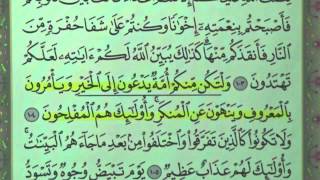 فَأَصْبَحْتُم بِنِعْمَتِهِۦٓ إِخْوَٰنًا وَكُنتُمْ عَلَىٰ شَفَا حُفْرَةٍ مِّنَ
ٱلنَّارِ فَأَنقَذَكُم مِّنْهَا ۗ كَذَٰلِكَ يُبَيِّنُ ٱللَّهُ لَكُمْ ءَايَٰتِهِۦ لَعَلَّكُمْ
تَهْتَدُونَ ١٠٣ وَلْتَكُن مِّنكُمْ أُمَّةٌ يَدْعُونَ إِلَى ٱلْخَيْرِ وَيَأْمُرُونَ
بِٱلْمَعْرُوفِ وَيَنْهَوْنَ عَنِ ٱلْمُنكَرِ ۚ وَأُو۟لَٰٓئِكَ هُمُ ٱلْمُفْلِحُونَ ١٠٤
وَلَا تَكُونُوا۟ كَٱلَّذِينَ تَفَرَّقُوا۟ وَٱخْتَلَفُوا۟ مِنۢ بَعْدِ مَا جَآءَهُمُ ٱلْبَيِّنَٰتُ ۚ
وَأُو۟لَٰٓئِكَ لَهُمْ عَذَابٌ عَظِيمٌ ١٠٥ يَوْمَ تَبْيَضُّ وُجُوهٌ وَتَسْوَدُّ